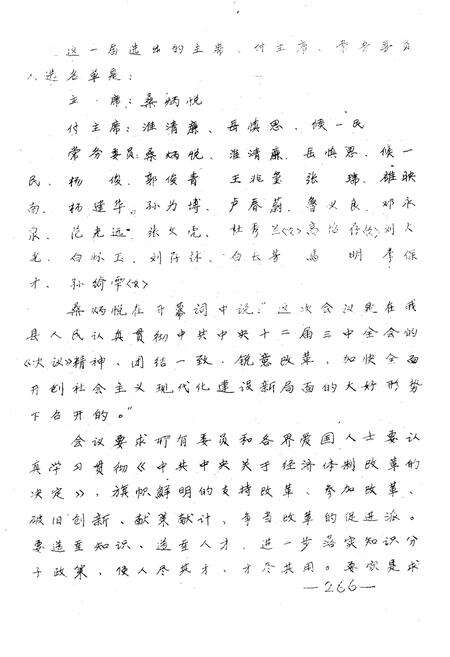 这一届选出的主席、付主席、常务委员
人选名单是：
主 席：桑炳悦
付主席：淮清廉、岳慎思、侯一民
常务委员：桑炳悦、淮清廉、岳慎思、侯一
民、杨 俊、郭俊青 王兆玺 张 瑞、雄映
南、杨建华、孙为博、卢春蔚、鲁义良、邓永
泉、范光远、张文亮、杜秀兰〈女〉 刘天
毛、白怀玉、刘存休、白长芳 冯 明 李保
才、孙绮霞〈女〉
桑炳悦在开幕词中说："这次会议是在我
县人民认真贯彻中共中央十二届三中全会的
《决议》精神、团结一致、锐意改革、加快全面
开创社会主义现代化建设新局面的大好形势
下召开的。"
会议要求所有委员和各界爱国人士要认
真学习贯彻《中共中央关于经济体制改革的
决定》，旗帜鲜明的支持改革、参加改革、
破旧创新、献策献计，争当改革的促进派。
要造重知识、造重人才，进一步落实知识分
子政策，使人尽其才，才尽其用。要实是求
—266—